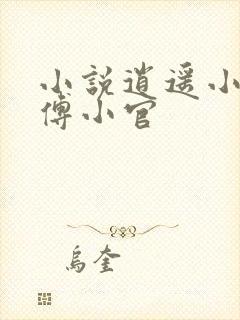 小說逍遥小
傅小官
烏奎